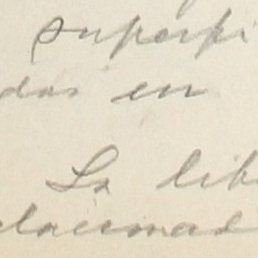 superfi
das en
La lib
claumad